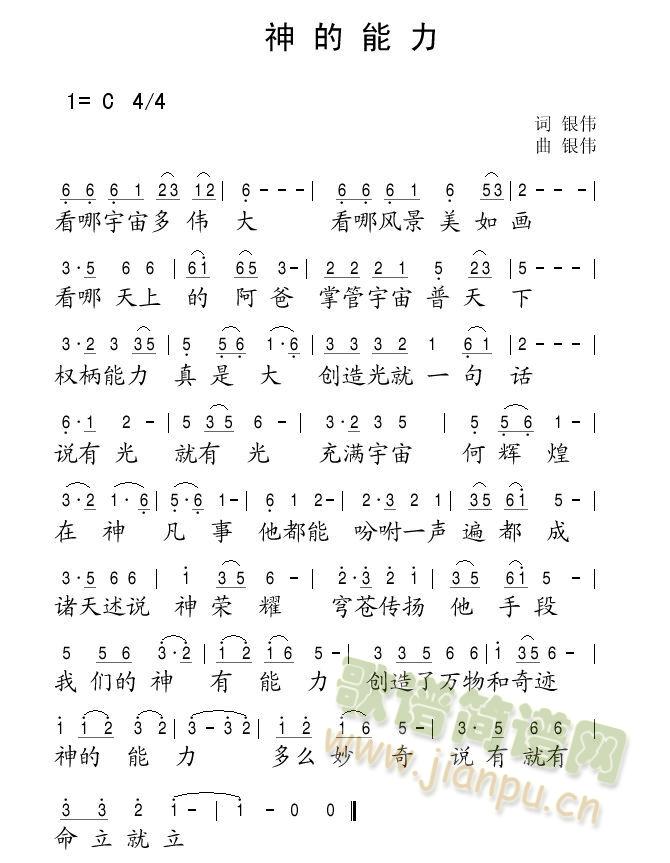 神的能力
1= C 4/4
词 银伟
曲 银伟
6 6 6 1 23 12 | 6 - - - | 6 6 6 1 6 53 | 2 - - - |
看哪宇宙多伟大 看哪风景美如画
3·5 6 6 | 61 65 3- | 2 2 2 1 5 23 | 5 - - - |
看哪天上的阿爸 掌管宇宙普天下
3·2 3 35 | 5 56 1·6 | 3 3 3 2 1 61 | 2 - - - |
权柄能力真是大 创造光就一句话
6·1 2 - | 5 35 6 - | 3·2 3 5 | 5 56 1 - |
说有光就有光 充满宇宙何辉煌
3·2 1·6 | 5·6 1- | 6 1 2 - | 2·3 2 1 | 35 61 5 - |
在神凡事他都能 吩咐一声遍都成
3·5 6 6 | 1 35 6 - | 2·3 2 1 | 6 35 61 5 - |
诸天述说神荣耀 穹苍传扬他手段
5 56 3·2 | 12 16 5 - | 3 3 5 6 6 | 1 356 - |
我们的神有能力 创造了万物和奇迹
1 12 3·2 | 3 - 32 | 12 16 5 - | 3·5 6 6 |
神的能力 多么妙奇 说有就有
3 3 2 1 - | 1 - 0 0 ‖
命立就立
歌谱简谱网
www.jianpu.cn